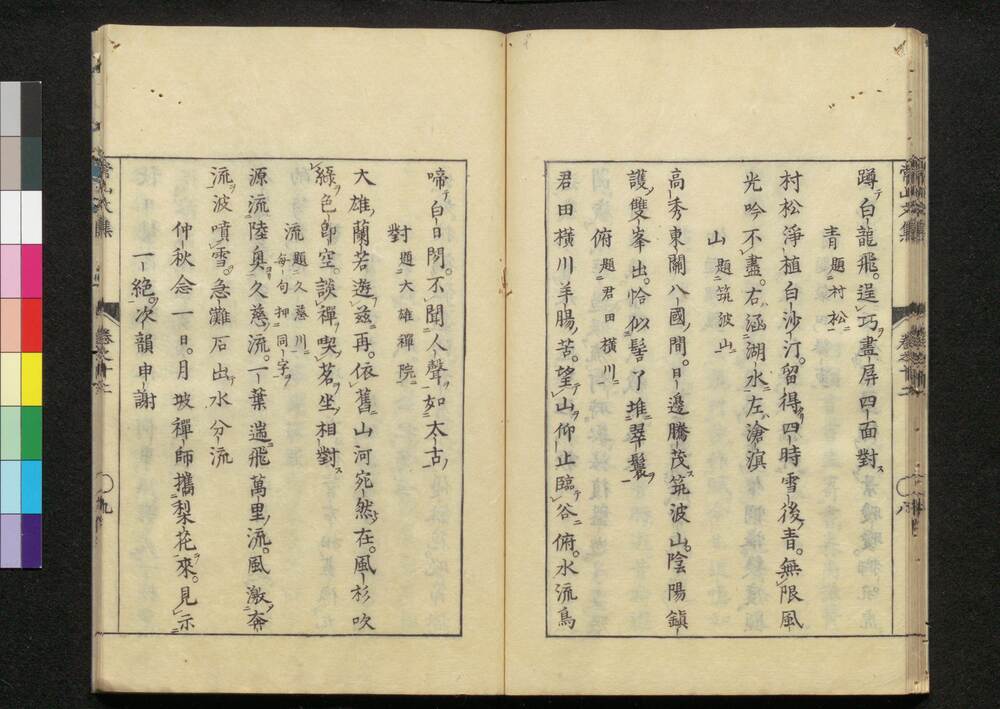 蹲白龍飛逞巧畫屏四面對
青 題村松
村松淨植白沙汀留得四時雪後青無限風
光吟不盡右涵湖水左滄溟
山 題筑波山
高秀東關八國間日邊騰茂筑波山陰陽鎮
護雙峯出恰似髻丫堆翠鬟
俯 題君田橫川
君田橫川羊腸苦望山仰止臨谷俯水流鳥
啼白日閑不聞人聲如太古
對 題大雄禪院
大雄蘭若遊茲再依舊山河宛然在風杉吹
綠色即空談禪喫茗坐相對
流 題久慈川
每句押同字
源流陸奧久慈流一葉遄飛萬里流風激奔
流波噴雪急灘石出水分流
仲秋念一日月坡禪師攜梨花來見示
一絕次韻申謝